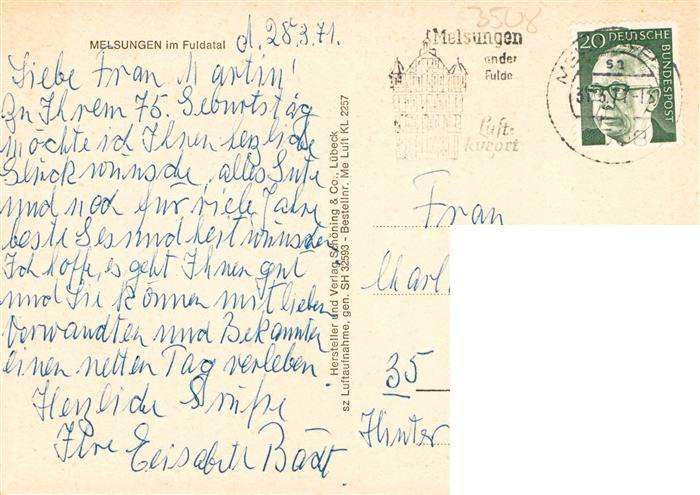 MELSUNGEN im Fuldatal
d. 28.3.71.
Liebe Frau Martin!
Zu Ihrem 75. Geburtstag
möchte ich Ihnen herzliche
Glückwünsche, alles Gute
und noch für viele Jahre
beste Gesundheit wünschen
Ich hoffe, es geht Ihnen gut
und Sie können mit lieben
Verwandten und Bekannten
einen netten Tag verleben.
Herzliche Grüße
Ihre Elisabeth
Hersteller und Verlag Schöning & Co., Lübeck
sz Luftaufnahme, gen. SH 32593 - Bestellnr. Me Luft KL 2257
3508
Melsungen
an der
Fulda
Luft-
kurort
20 DEUTSCHE
BUNDESPOST
Frau
Charl
35
Hinter